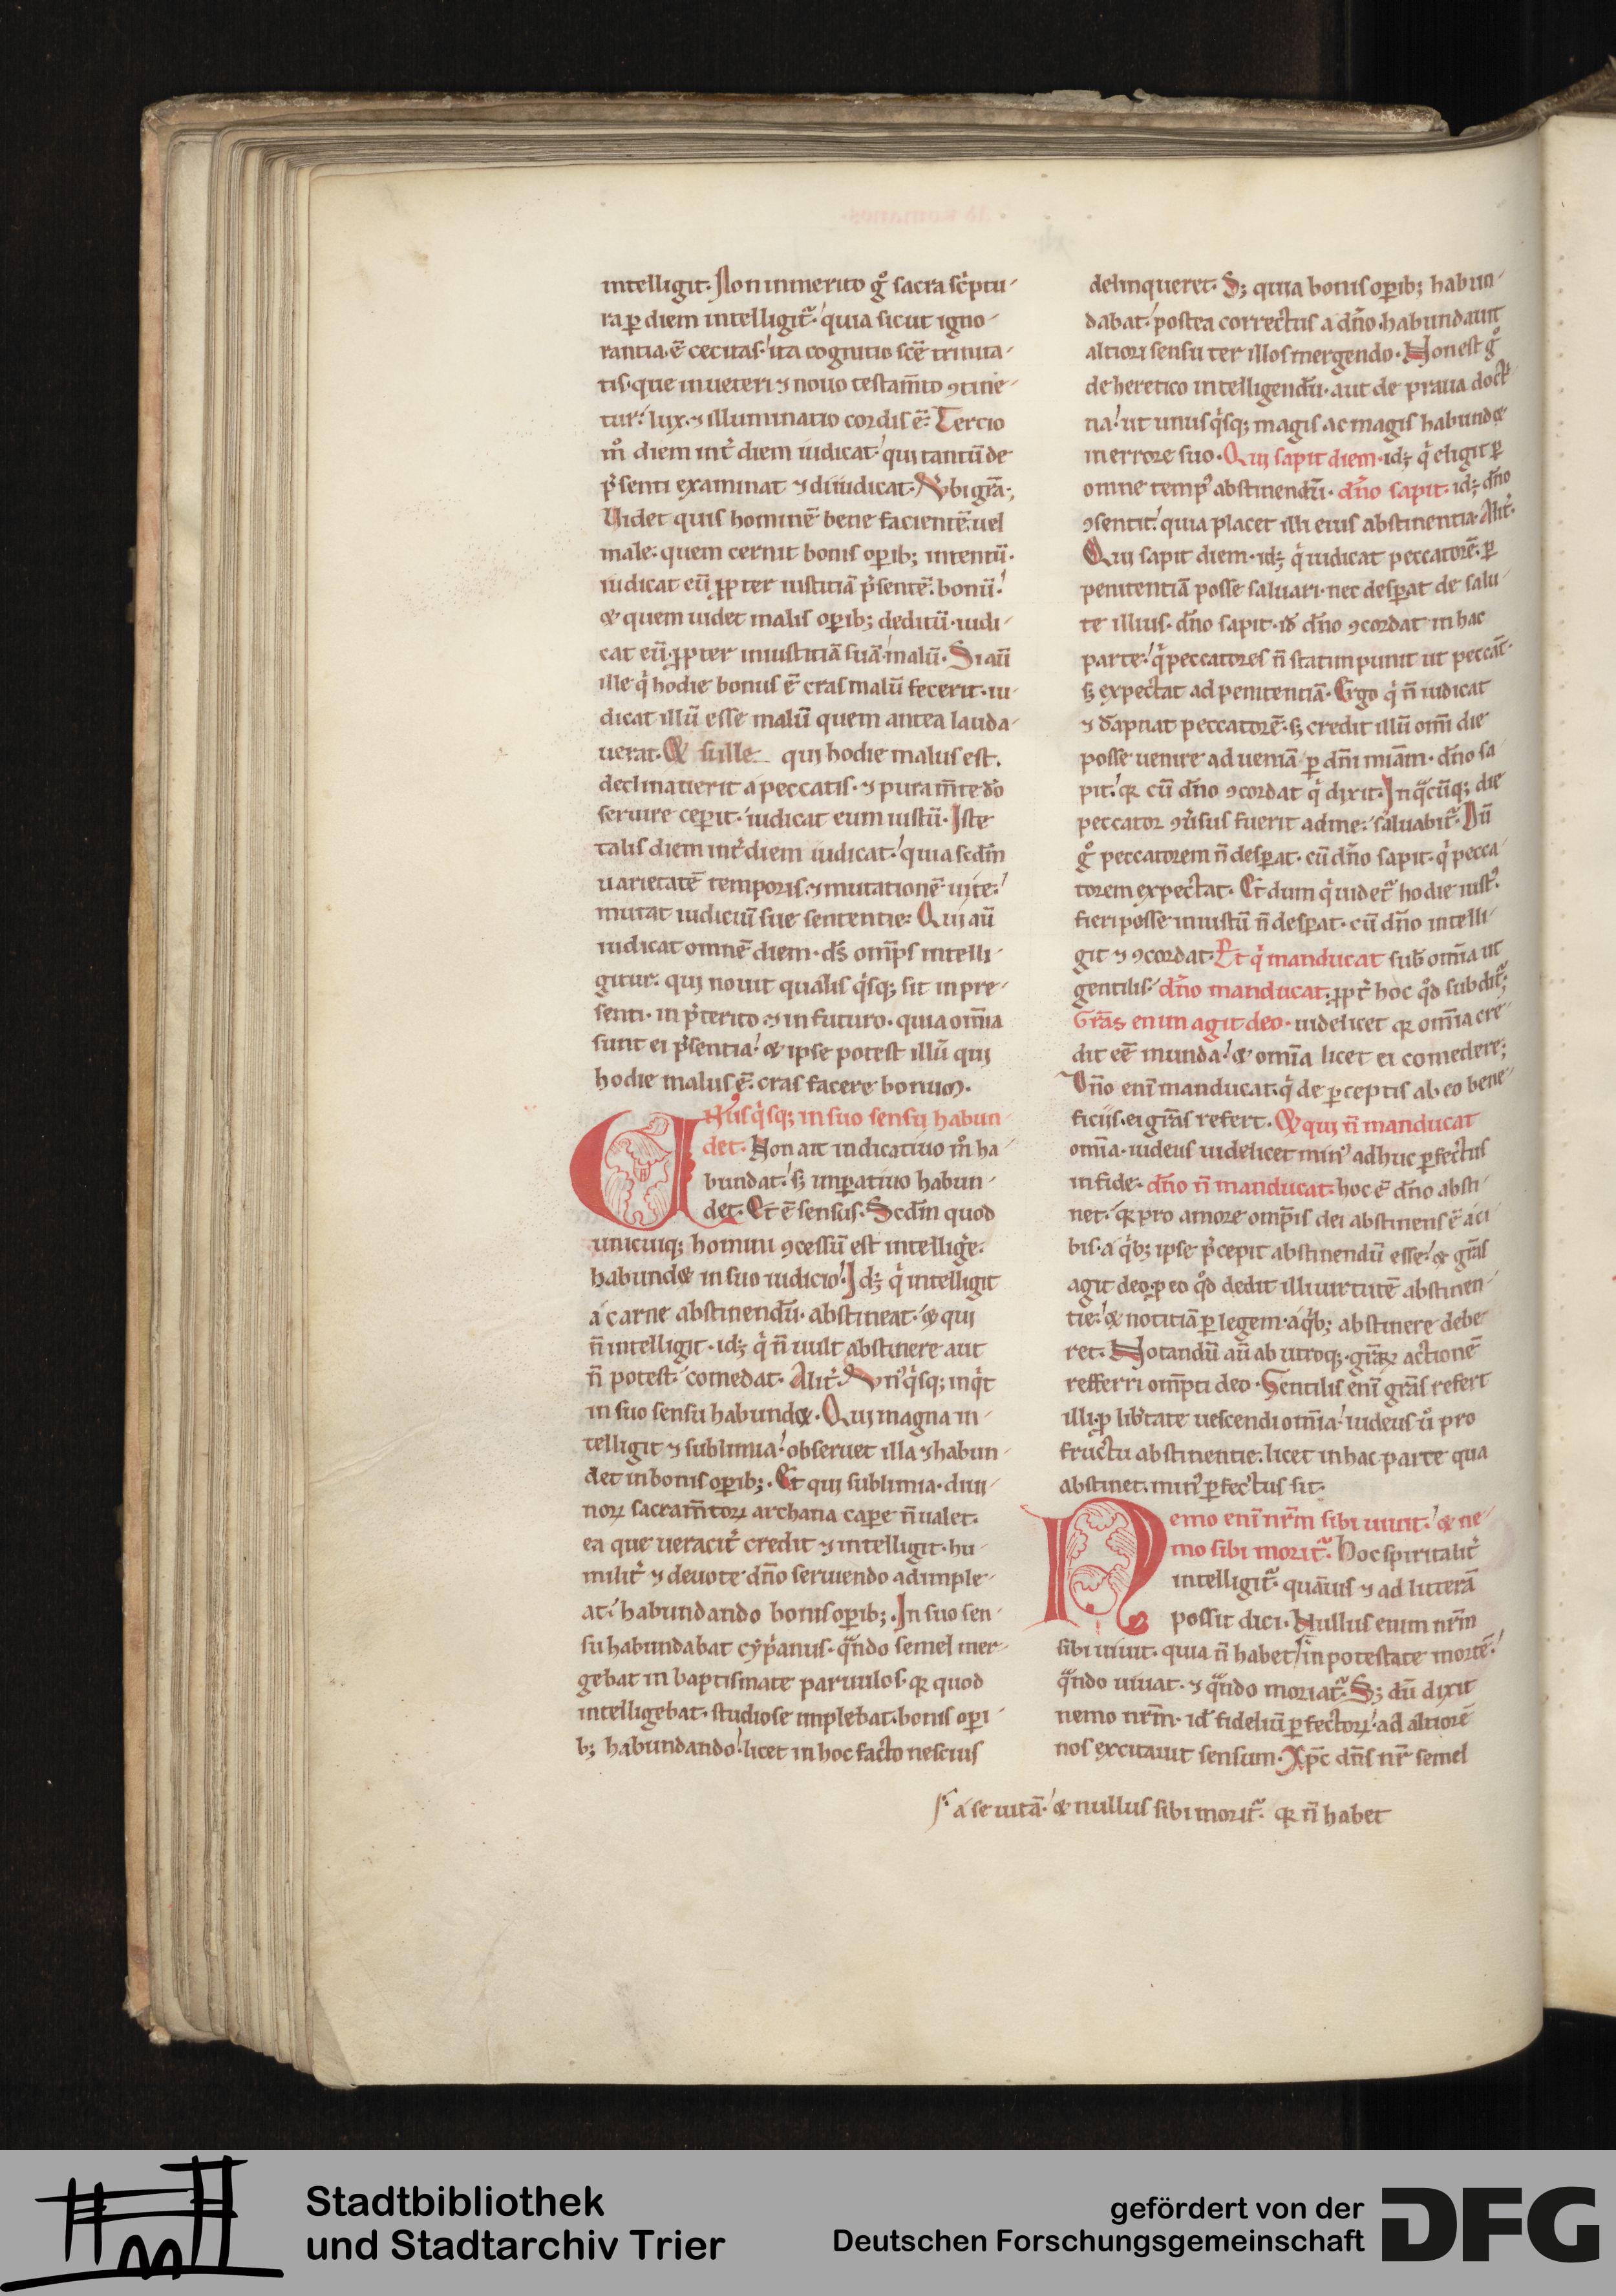 intelligit. Non inmerito g̊ sacra sc̄ptu-
ra ꝑ diem intelligit᷑. quia sicut igno-
rantia ē cecitas. ita cognitio sc̄e trinita-
tis. que in ueteri ⁊ nouo testam̄to ꝯtine-
tur. lux ⁊ illuminatio cordis ē. Tercio
m̊ diem int̄ diem iudicat. qui tantū de
p̄senti examinat ⁊ diiudicat. Vbi gr̄a.
Videt quis hominē bene facientē. uel
male. quem cernit bonis oꝑib; intentū.
iudicat eū ꝓpter iustitiā p̄sentē. bonū.
& quem uidet malis oꝑib; deditū. iudi-
cat eū. ꝓpter iniustitiā suā. malū. Si aū
ille q̇ hodie bonus ē cras malū fecerit. iu-
dicat illū esse malū quem antea lauda-
uerat. Et si ille qui hodie malus est.
declinauerit a peccatis. ⁊ pura m̄te do
seruire ceꝑit. iudicat eum iustū. Iste
talis diem int̄ diem iudicat. quia scd̄m
uarietatē temporis ⁊ mutationē uite.
mutat iudiciū sue sententie. Qui aū
iudicat omnē diem. ds̄ omīps intelli-
gitur. qui nouit qualis q̇sq; sit in pre-
senti. in p̄terito ⁊ in futuro. quia om̄ia
sunt ei p̄sentia. & ipse potest illū qui
hodie malus ē. cras facere bonum.
Vnusq̇sq; in suo sensu habun
det. Non ait indicatiuo m̊ ha-
bundat. s; imꝑatiuo habun-
det. Et ē sensus. Scd̄m quod
unicuiq; homini ꝯcessū est intelliḡe.
habund& in suo iudicio. Id; q̇ intelligit
a carne abstinendū. abstineat. & qui
n̄ intelligit. id; q̇ n̄ uult abstinere aut
n̄ potest. comedat. Alit̄. Vn᷒q̇sq; inq̇t
in suo sensu habund&. Qui magna in-
telligit ⁊ sublimia. obseruet illa ⁊ habun-
det in bonis oꝑib;. Et qui sublimia. diui-
noꝝ sacram̄toꝝ archana caꝑe n̄ ualet.
ea que ueracit̄ credit ⁊ intelligit. hu-
milit̄ ⁊ deuote dn̄o seruiendo adimple-
at. habundando bonis oꝑib;. In suo sen-
su habundabat cyp̄anus. qͣndo semel mer-
gebat in baptismate paruulos. qꝛ quod
intelligebat. studiose implebat. bonis oꝑi-
b; habundando. licet in hoc facto nescius
delinqueret. S; quia bonis oꝑib; habun-
dabat. postea correctus a dn̄o. habundauit
altiori sensu ter illos mergendo. Non est g̊
de heretico intelligendū. aut de praua doct̄-
na. ut unusq̇sq; magis ac magis habund&
in errore suo. Qui sapit diem. id; q̇ eligit ꝑ
omne temp᷒ abstinendū. dn̄o sapit. id; dn̄o
ꝯsentit. quia placet illi eius abstinentia. Alit̄.
Qui sapit diem. id; q̇ iudicat peccatorē. ꝑ
penitentiā posse saluari. nec desꝑat de salu-
te illius. dn̄o sapit. id̄ dn̄o ꝯcordat in hac
parte. q̇ peccatores n̄ statim punit ut peccāt.
s; expectat ad penitentiā. Ergo q̇ n̄ iudicat
⁊ dāpnat peccatorē. s; credit illū om̄i die
posse uenire ad ueniā ꝑ dn̄i miām. dn̄o sa
pit. qꝛ cū dn̄o ꝯcordat q̇ dixit. In qͣcūq; die
peccator ꝯūsus fuerit ad me. saluabit᷑. Dū
g̊ peccatorem n̄ desꝑat. cū dn̄o sapit. q̇ pecca-
torem expectat. Et dum q̇ uidet᷑ hodie iust᷒
fieri posse iniustū n̄ desꝑat. cū dn̄o intelli-
git ⁊ ꝯcordat. Et q̇ manducat sub̄ om̄ia ut
gentilis. dn̄o manducat. ꝓpt̄ hoc qd̊ subdit᷑.
Grās enim agit deo. uidelicet qꝛ om̄ia cre-
dit eē munda. & om̄ia licet ei comedere;
Dn̄o enī manducat. q̇ de ꝑceptis ab eo bene-
ficiis. ei grās refert. Et qui n̄ manducat
om̄ia. iudeus uidelicet min᷒ adhuc ꝑfectus
in fide. dn̄o n̄ manducat. hoc ē dn̄o absti-
net. qꝛ pro amore omp̄is dei abstinens ē a ci
bis. a q̇b; ipse p̄cepit abstinendū esse. & grās
agit deo. ꝓ eo qd̊ dedit illi uirtutē abstinen-
tie. & notitiā ꝑ legem. a q̇b; abstinere debe
ret. Notandū aū ab utroq;. grāꝝ actionē
refferri omīpti deo. Gentilis enī grās refert
illi. ꝓ lib̄tate uescendi om̄ia. iudeus ů pro
fructu abstinentie. licet in hac parte qua
abstinet. min᷒ ꝑfectus sit.
Nemo enī nr̄m sibi uiuit. & ne-
mo sibi morit᷑. Hoc spiritalit̄
intelligit᷑. quāuis ⁊ ad litterā
possit dici. Nullus enim nr̄m
sibi uiuit. quia n̄ habet in potestate mortē.
qͣndo uiuat. ⁊ qͣndo moriat᷑. S; dū dixit
nemo nr̄m. id̄ fideliū ꝑfectoꝝ. ad altiorē
nos excitauit sensum. Xp̄c dn̄s nr̄ semel
a se uitā. & nullus sibi morit᷑. qꝛ n̄ habet
Stadtbibliothek
und Stadtarchiv Trier
gefördert von der
Deutschen Forschungsgemeinschaft
DFG